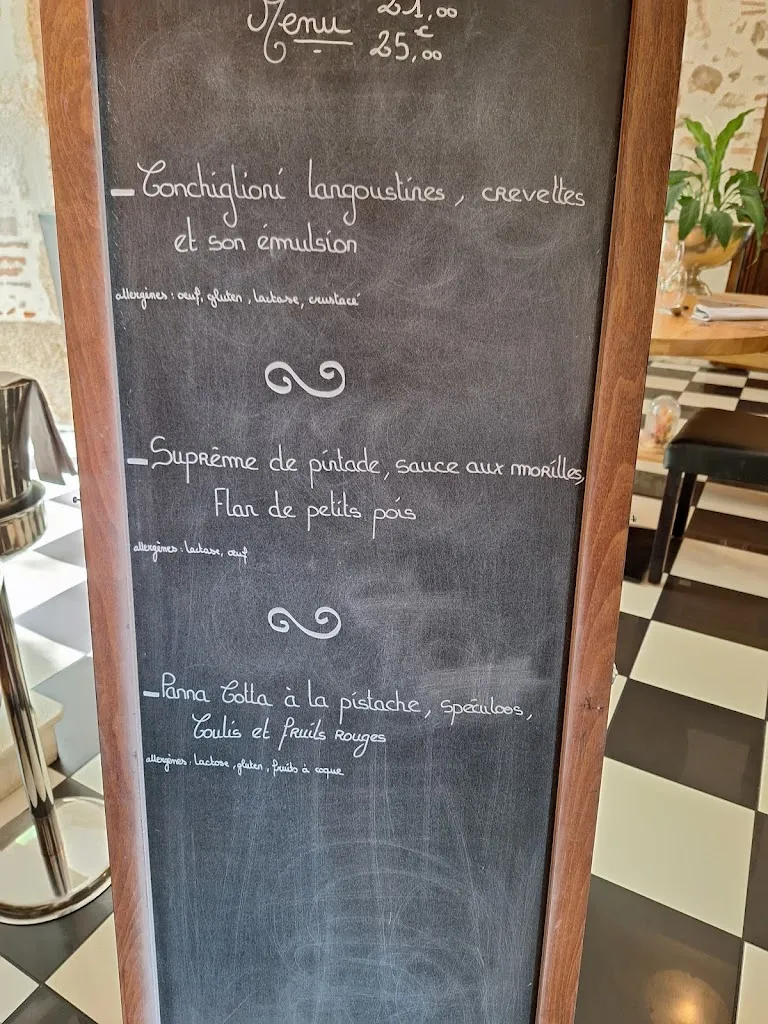 Menu 21,00
€
25,00
- Conchiglioni langoustines, crevettes
et son émulsion
allergènes : oeuf, gluten, lactose, crustacé
- Suprême de pintade, sauce aux morilles,
Flan de petits pois
allergènes : lactose, oeuf
- Panna Cotta à la pistache, spéculoos,
Coulis et fruits rouges
allergènes : lactose, gluten, fruits à coque